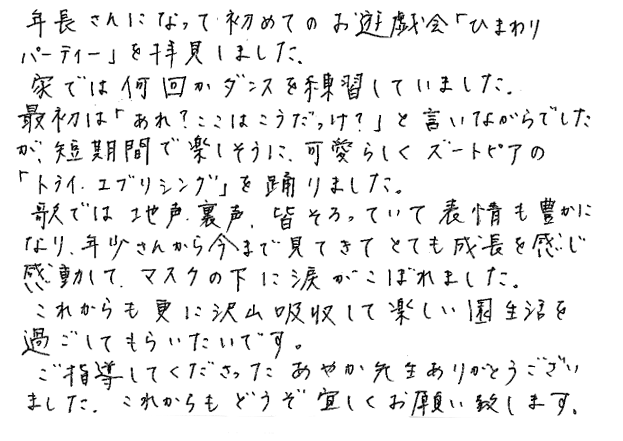 年長さんになって初めてのお遊戯会「ひまわり
パーティー」を拝見しました。
家では何回かダンスを練習していました。
最初は「あれ？ここはこうだっけ？」と言いながらでした
が、短期間で楽しそうに、可愛らしくズートピアの
「トライ・エブリシング」を踊りました。
歌では地声、裏声、皆そろっていて表情も豊かに
なり、年少さんから今まで見てきてとても成長を感じ
感動して、マスクの下に涙がこぼれました。
これからも更に沢山吸収して楽しい園生活を
過ごしてもらいたいです。
ご指導してくださったあやか先生ありがとうござい
ました。これからもどうぞ宜しくお願い致します。